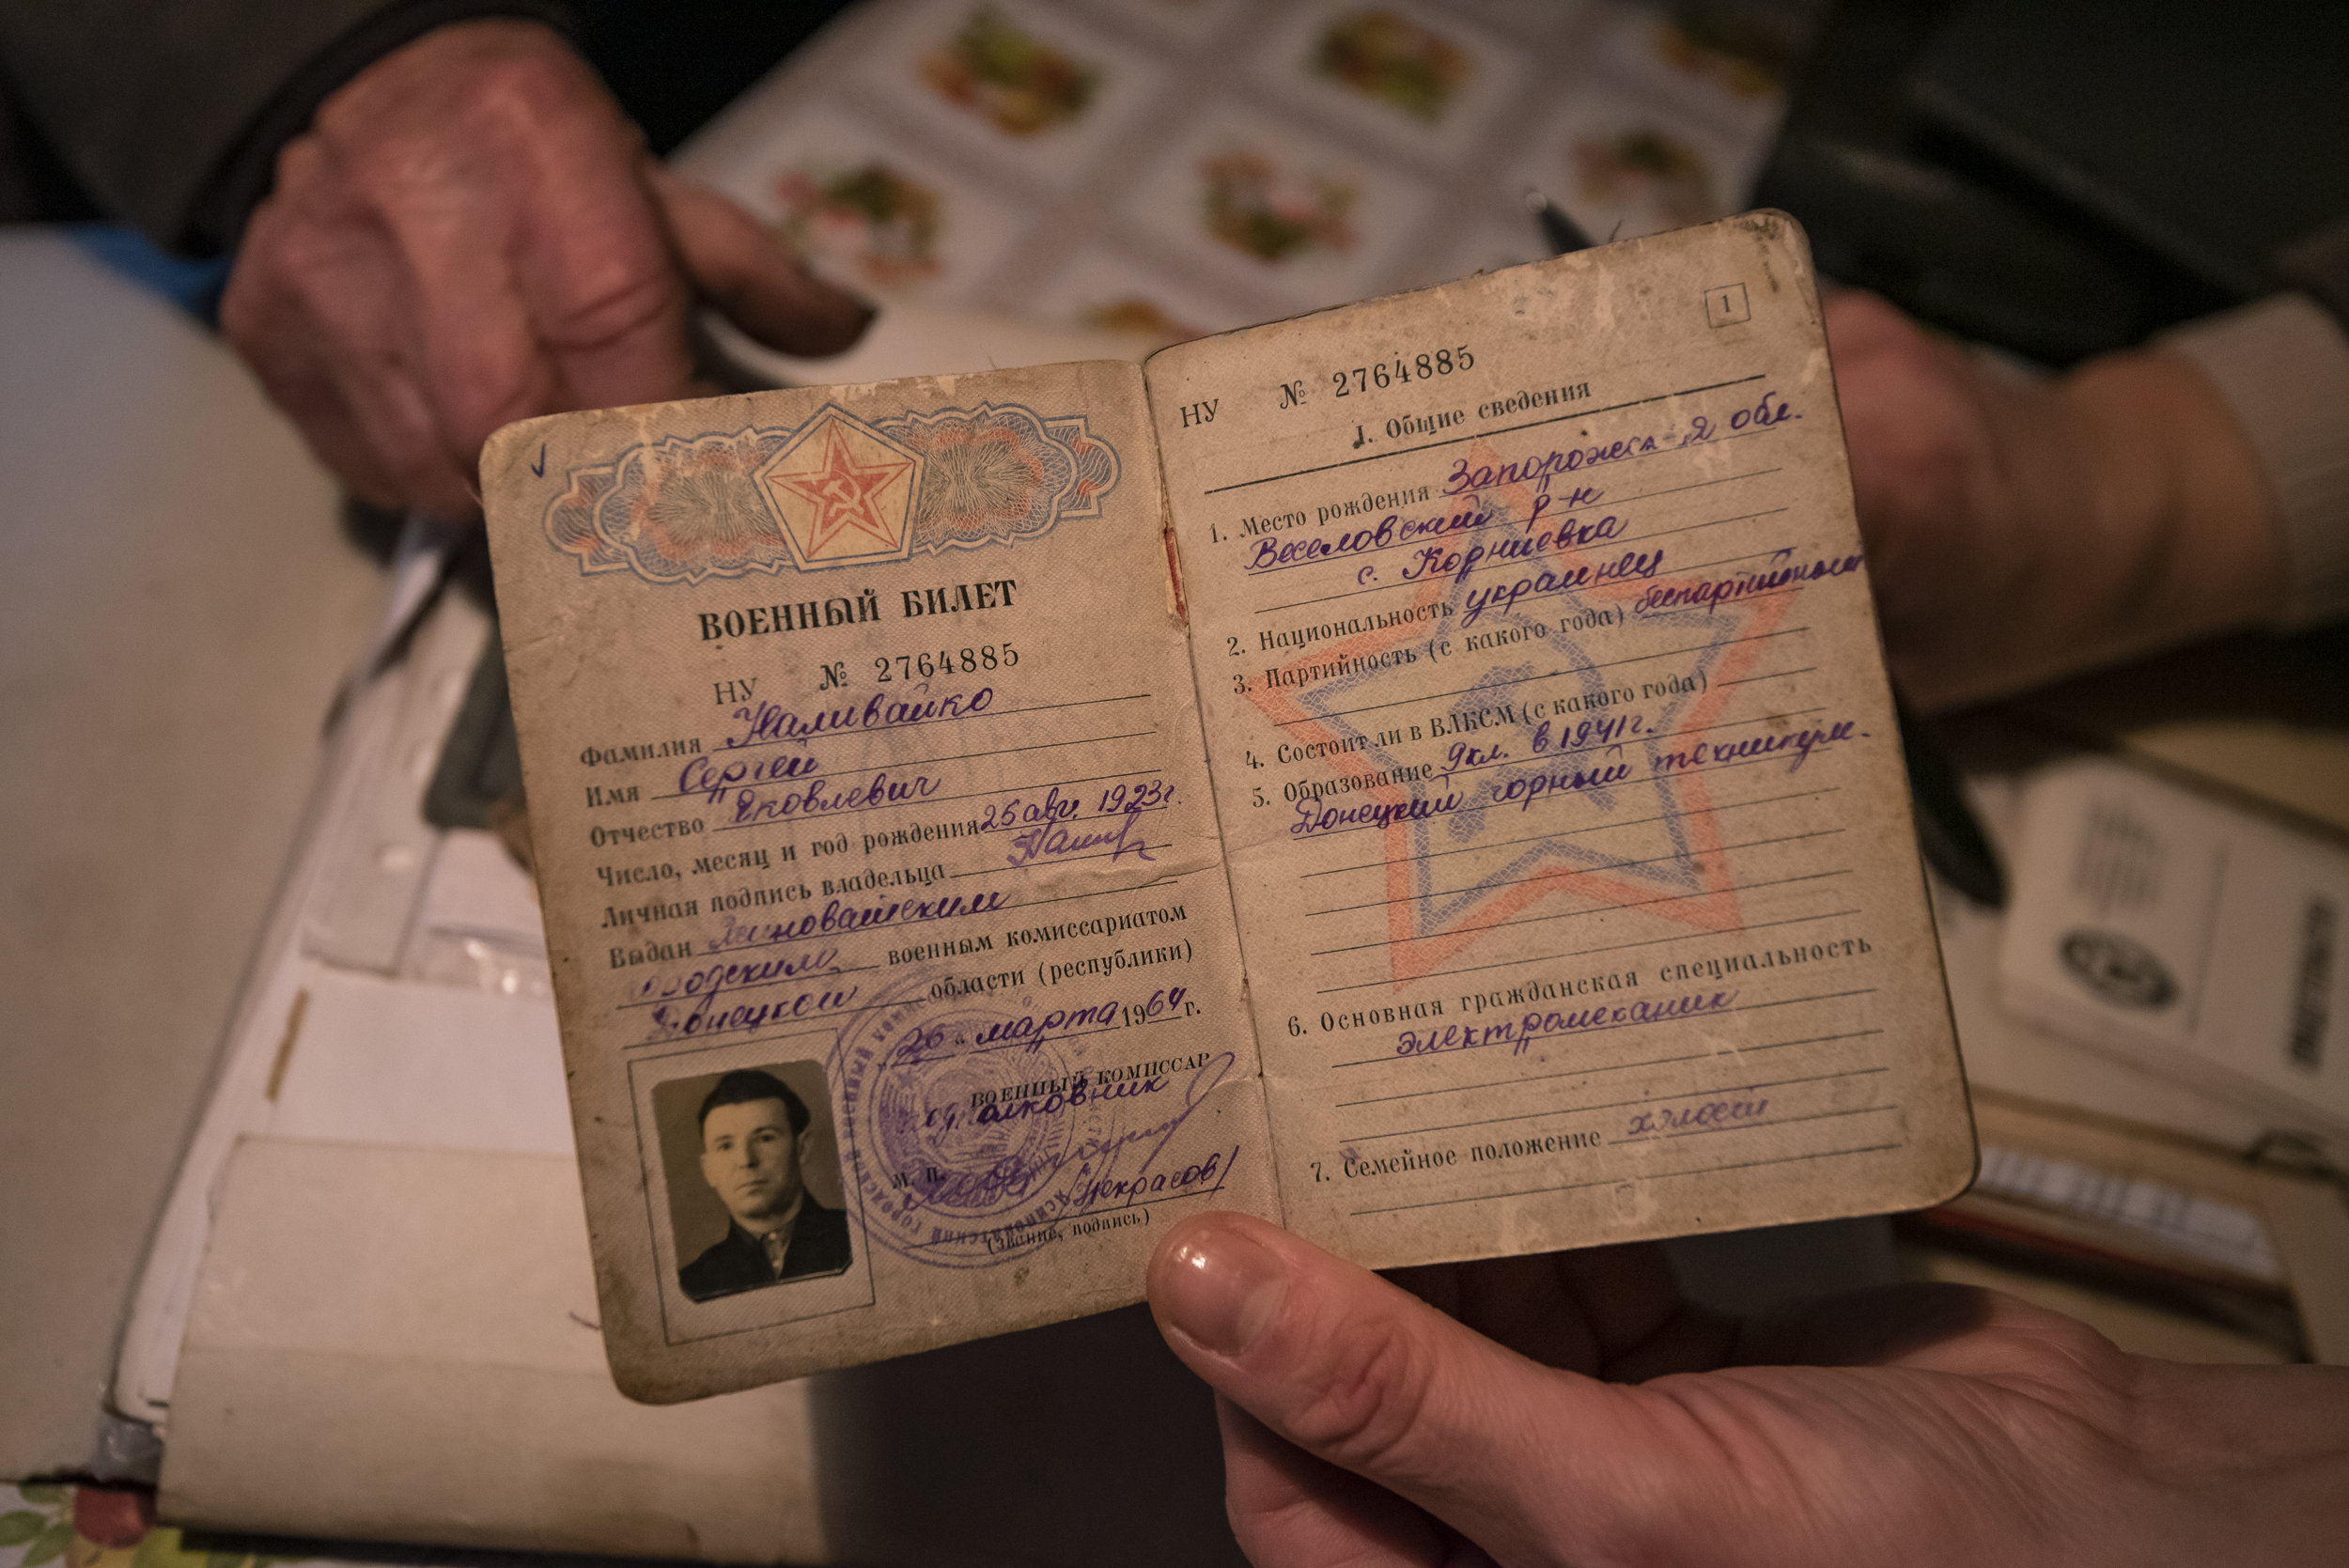 ВОЕННЫЙ БИЛЕТ
НУ № 2764885
Фамилия Наливайко
Имя Сергей
Отчество Яковлевич
Число, месяц и год рождения 25 авг. 1923г.
Личная подпись владельца
Выдан
военным комиссариатом
Донецкой области (республики)
„26“ марта 1964 г.
ВОЕННЫЙ КОМИССАР
М. П.
(Некрасов)
(звание, подпись)
1
НУ № 2764885
I. Общие сведения
1. Место рождения Запорожская обл.
Веселовский р-н
с. Корниевка
2. Национальность украинец
3. Партийность (с какого года) беспартийный
4. Состоит ли в ВЛКСМ (с какого года)
5. Образование 9 кл. в 1941г.
Донецкий горный техникум.
6. Основная гражданская специальность
электромеханик
7. Семейное положение холост